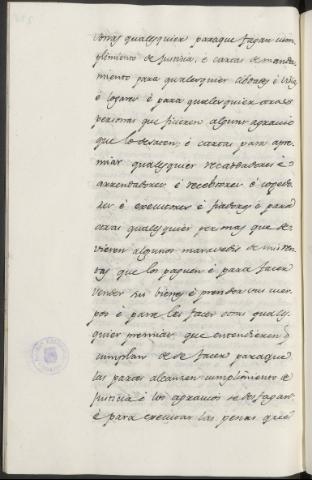 otras qualesquier paraque fagan cum-
plimiento de Justicia, é cartas de manda-
miento para qualesquier cibdades é Villas
é logares é para qualesquier otras
personas que ficieren algunt agravio
que lo desaten; é cartas para apre-
miar qualesquier recabdadores é
arrendadores, é recebtores é cogedo-
res é executores é fiadores é para
otras qualesquier personas que de-
vieren algunos maravedis de mis ren-
tas que los paguen é para facer
vender sus bienes é prender sus cuer-
pos é para les facer otras quales-
quier premias, que entendieren
cumplan de se facer paraque
las partes alcanzen cumplimiento de
Justicia é los agravios se desfagan
é para executar las penas que